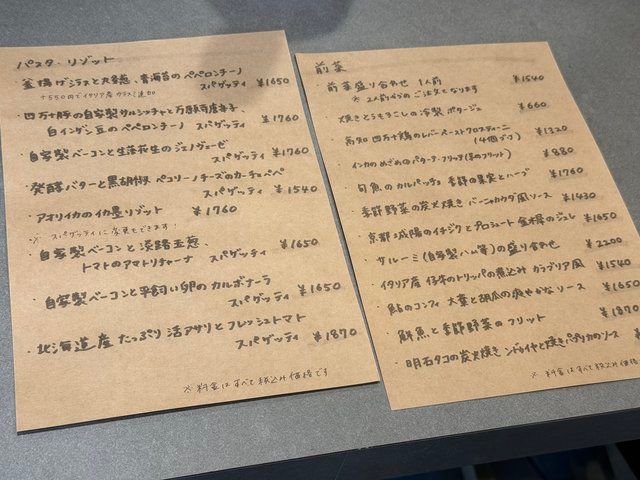 パスタ・リゾット
・釜揚げシラスと大葉、青海苔のペペロンチーノ
スパゲッティ ¥1650
+550円でイタリア産カラスミ追加
・四万十豚の自家製サルシッチャと万願寺唐辛子、
白インゲン豆のペペロンチーノ スパゲッティ ¥1760
・自家製ベーコンと生落花生のジェノヴェーゼ
スパゲッティ ¥1760
・発酵バターと黒胡椒 ペコリーノチーズのカーチョペペ
スパゲッティ ¥1540
・アオリイカのイカ墨リゾット ¥1760
※ スパゲッティに変更もできます!
・自家製ベーコンと淡路玉葱、
トマトのアマトリチャーナ スパゲッティ ¥1650
・自家製ベーコンと平飼い卵のカルボナーラ
スパゲッティ ¥1650
・北海道産 たっぷり活アサリとフレッシュトマト
スパゲッティ ¥1870
※ 料金はすべて税込み価格です
前菜
・前菜盛り合わせ 1人前 ¥1540
※ 2人前からのご注文となります
・焼きとうもろこしの冷製ポタージュ ¥660
・高知 四万十鶏のレバーペーストクロスティーニ
(4個プク) ¥1320
・インカのめざめのパタータ・フリッタ(半のフリット) ¥880
・旬魚のカルパッチョ 季節の果実とハーブ ¥1760
・季節野菜の炭火焼き バーニャカウダ風ソース ¥1430
・京都城陽のイチジクとプロシュート 金木犀のジュレ ¥1650
・サルーミ(自家製ハム等)の盛り合わせ ¥2200
・イタリア産 仔牛のトリッパの煮込み カラブリア風 ¥1540
・鮎のコンフィ 大葉と胡瓜の爽やかなソース ¥1650
・鮮魚と季節野菜のフリット ¥1870
・明石タコの炭火焼き ンドゥイヤと焼きパプリカのソース
※ 料金はすべて税込み価格です